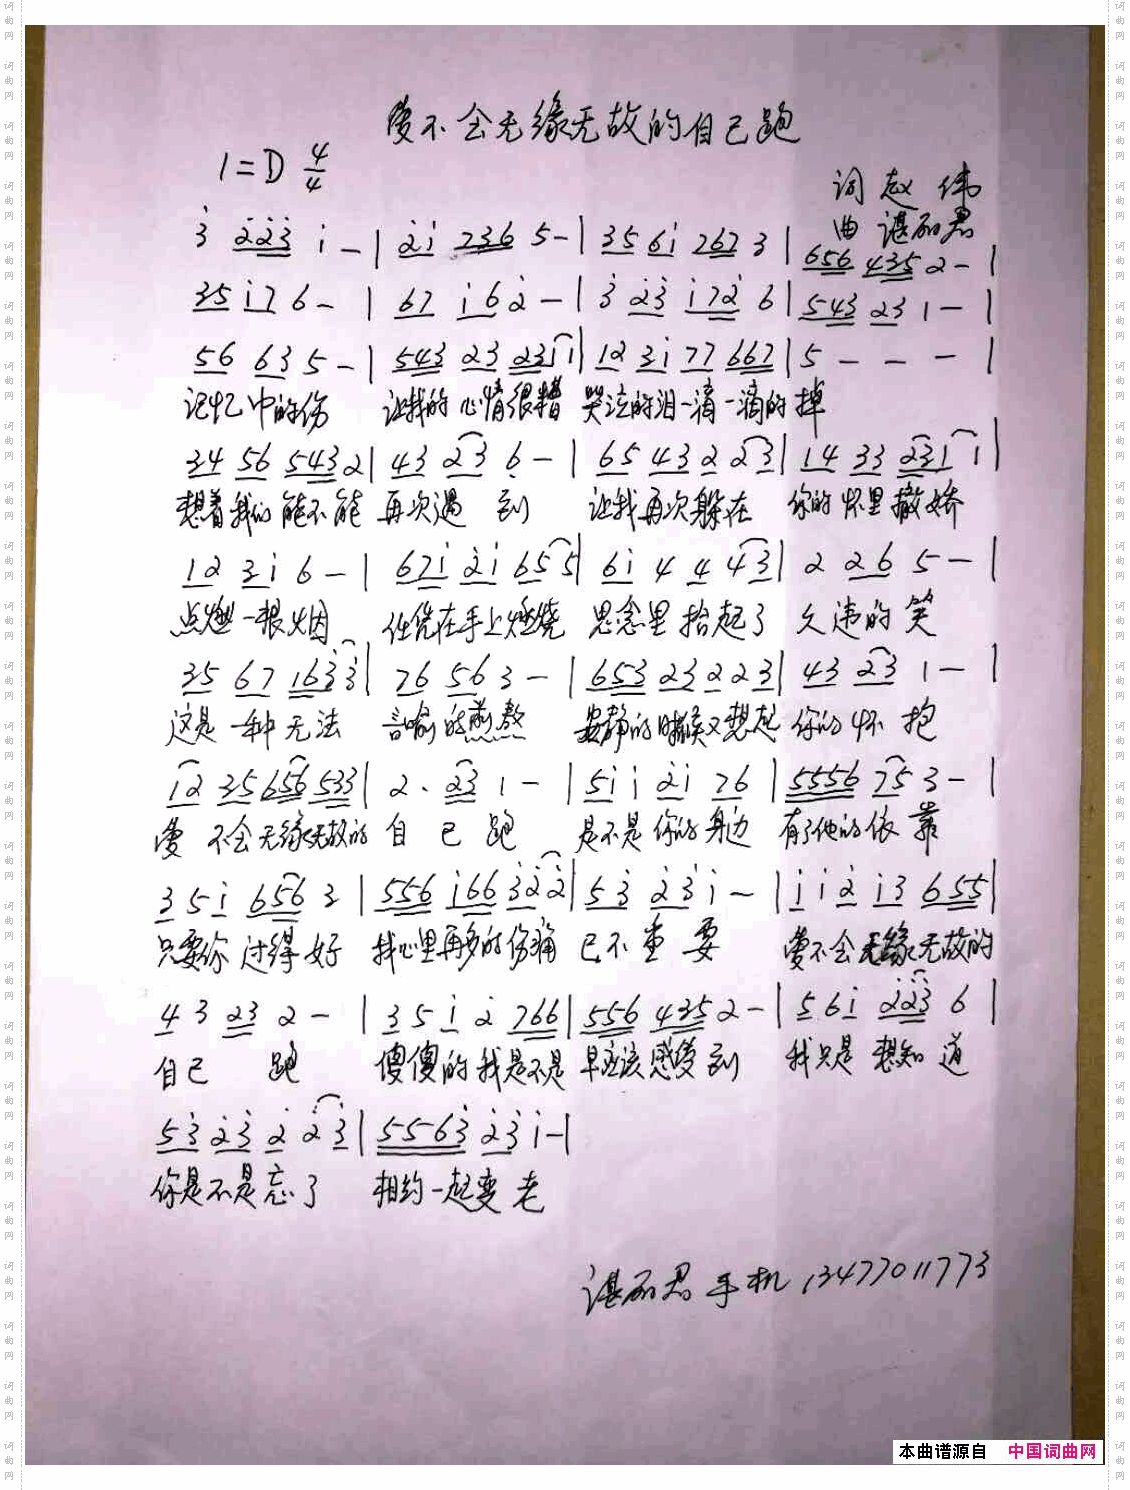 爱不会无缘无故的自己跑
1=D 4/4
词 赵 伟
曲 谌丽君
3̇ 2̇2̇3̇ 1̇ - | 2̇1̇ 736 5 - | 35 61̇ 767 3 | 656 435 2 - |
35 1̇7 6 - | 67 1̇6 2̇ - | 3̇ 2̇3̇ 1̇72̇ 6 | 543 23 1 - |
56 63 5 - | 543 23 2311 | 12 31̇ 77 667 | 5 - - - |
记忆中的伤 让我的心情很糟 哭泣的泪一滴一滴的掉
34 56 543 2 | 43 23 6̣ - | 65 43 2 23 | 14 33 231 1 |
想着我们能不能 再次遇 到 让我再次躲在 你的怀里撒娇
12 31̇ 6 - | 671̇ 2̇1̇ 65 5 | 61̇ 4 4 43 | 2 26 5 - |
点燃一根烟 任凭在手上燃烧 思念里拾起了 久违的笑
35 67 163̇ 3̇ | 76 56 3 - | 653 23 2 23 | 43 23 1 - |
这是一种无法 言喻的煎熬 安静的时候又想起 你的怀 抱
12 35 656 533 | 2. 23 1 - | 51̇ 1̇ 2̇1̇ 76 | 5556 75 3 - |
爱 不会无缘无故的 自 己 跑 是不是你的身边 有了他的依 靠
3 51̇ 656 3 | 556 1̇66 3̇2̇ 2̇ | 53̇ 2̇3̇ 1̇ - | 1̇ 1̇2̇ 1̇3 655 |
只要你 过得好 我心里再多的伤痛 已不重 要 爱不会无缘无故的
4 3 23 2 - | 3 51̇ 2̇ 766 | 556 435 2 - | 5 61̇ 2̇2̇3̇ 6 |
自己 跑 傻傻的我是不是 早应该感受到 我只是 想知 道
53̇ 2̇3̇ 2̇ 2̇3̇ | 5563̇ 2̇3̇ 1̇ - |
你是不是忘了 相约一起变 老
谌丽君 手机 13477011773
本曲谱源自 中国词曲网